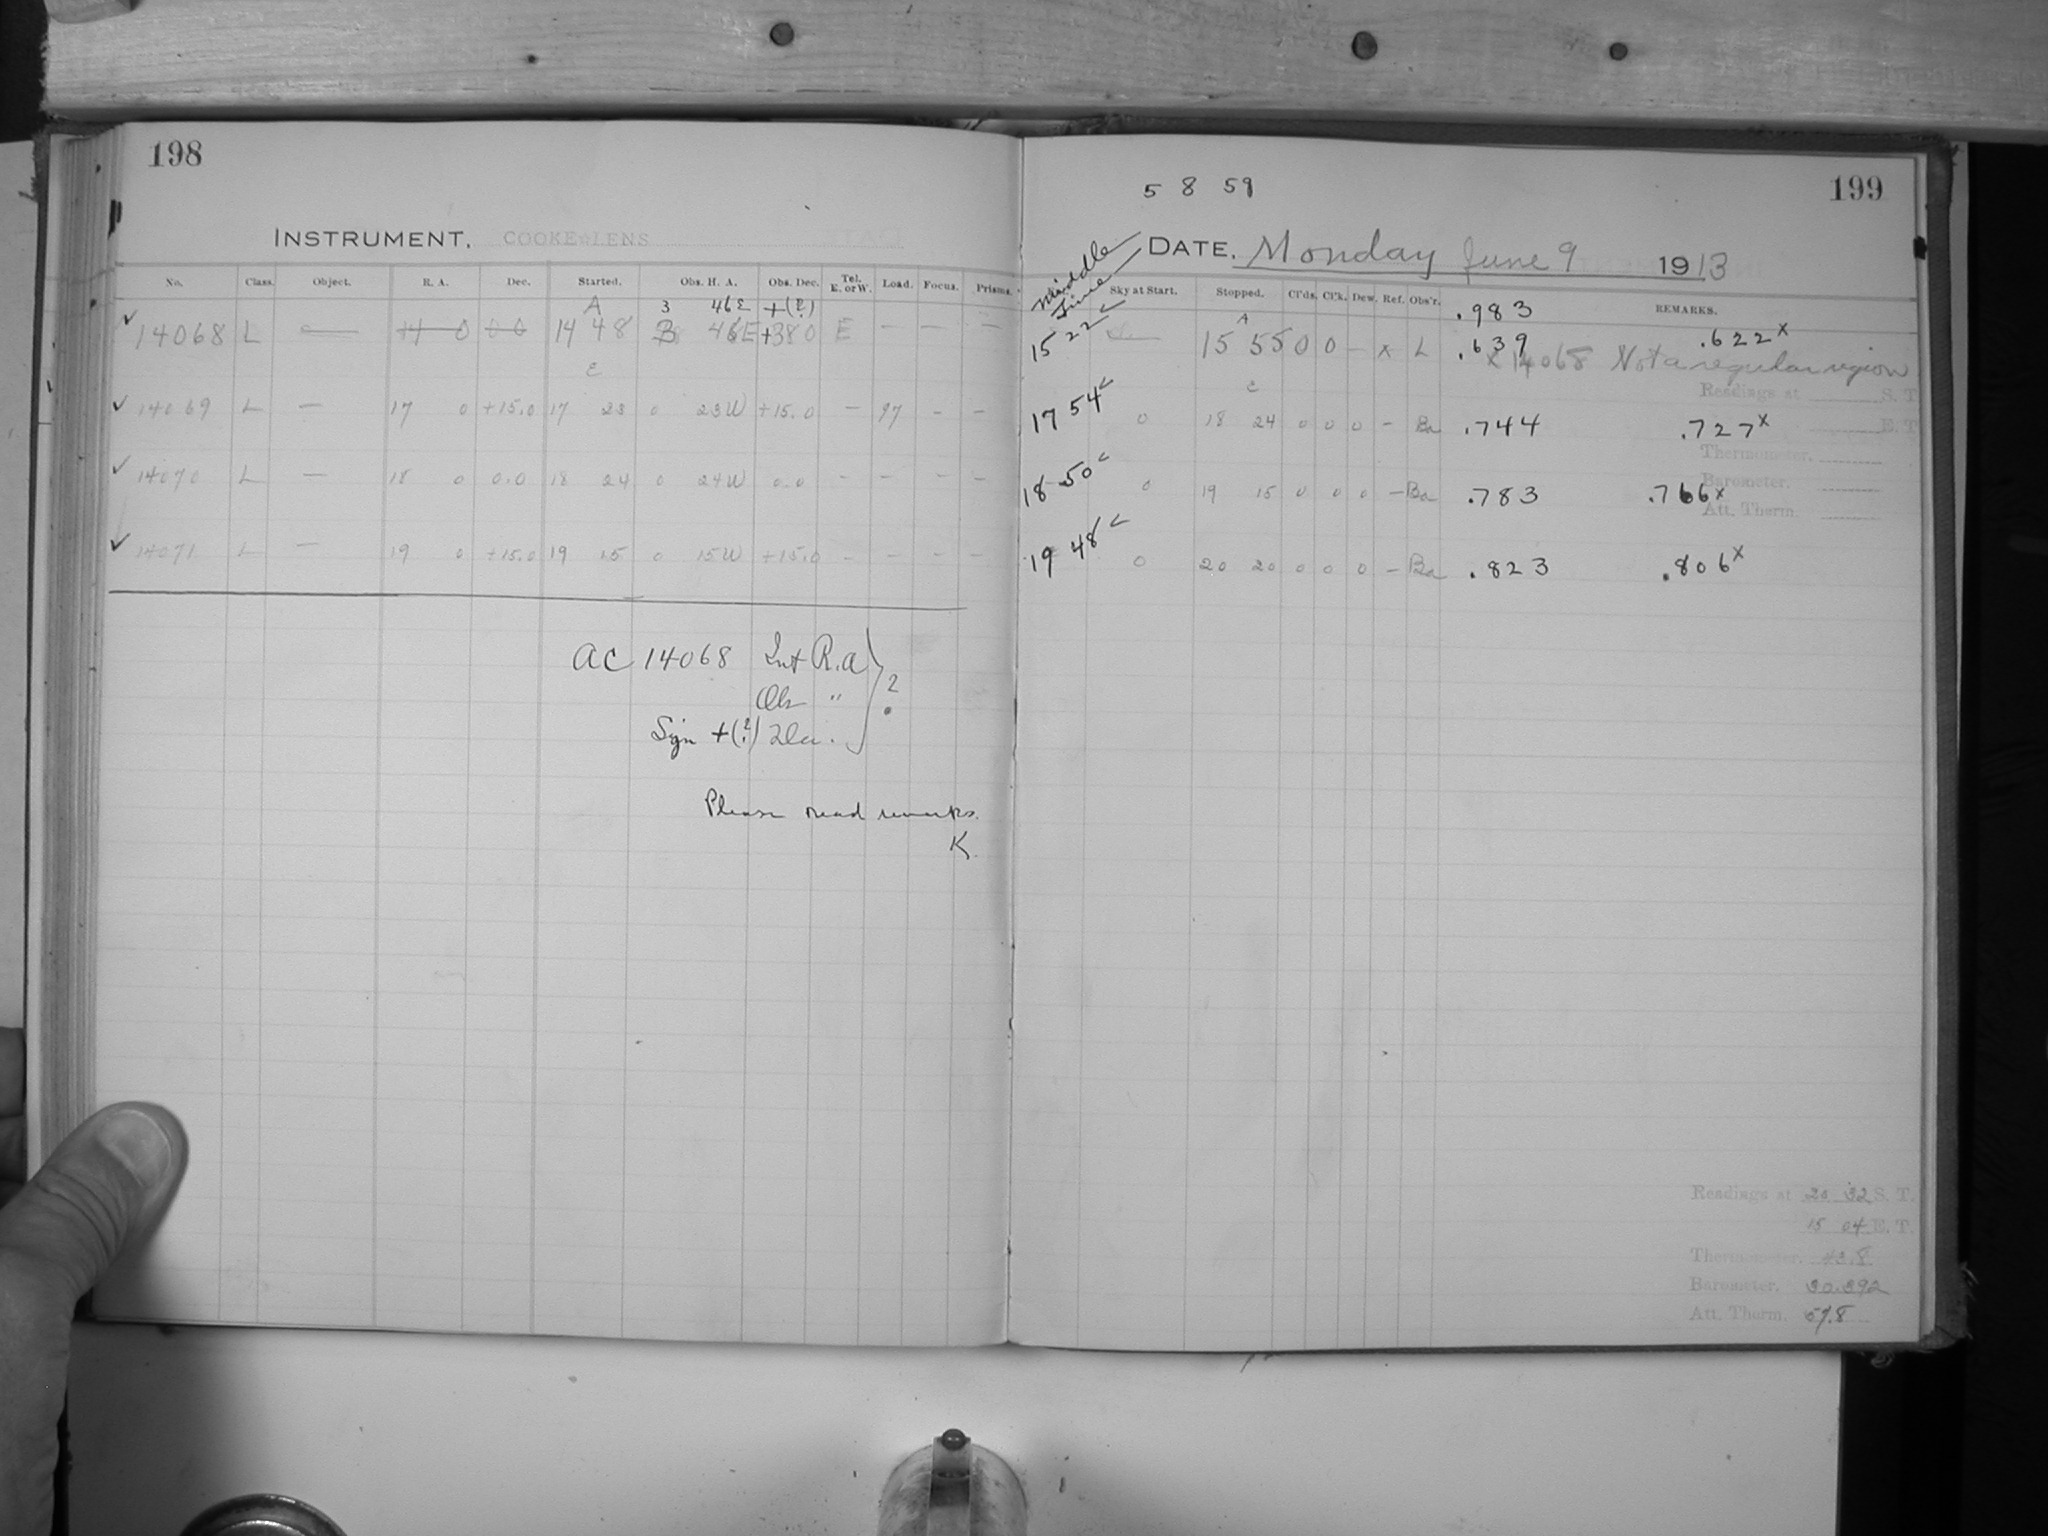 198
INSTRUMENT. COOKE LENS
No. Class. Object. R. A. Dec. Started. Obs. H. A. Obs. Dec. Tel. E. or W. Load. Focus. Prisms.
A 3 46E +(?)
14068 L — 14 48 3 46E +38 0 E — — —
c
14069 L — 17 0 +15.0 17 23 0 23W +15.0 — 97 - -
14070 L — 18 0 0.0 18 24 0 24W 0.0 - - - -
14071 L — 19 0 +15.0 19 15 0 15W +15.0 - - - -
AC 14068 Int R.A
Obs " ?
Sign +(?) Dec.
Please read remarks.
K.
5 8 59
199
Middle Time
DATE. Monday June 9 1913
Sky at Start. Stopped. Cl'ds. Cl'k. Dew. Ref. Obs'r. .983 REMARKS.
A
15 22 15 55 0 0 — x L .639 .622x
x 14068 Not a regular region
Readings at S. T.
c
17 54 0 18 24 0 0 0 - Ba .744 .727x E. T.
Thermometer.
18 50 0 19 15 0 0 0 - Ba .783 .766x Barometer.
Att. Therm.
19 48 0 20 20 0 0 0 - Ba .823 .806x
Readings at 20 32 S. T.
15 04 E. T.
Thermometer. 43.8
Barometer. 30.392
Att. Therm. 57.8